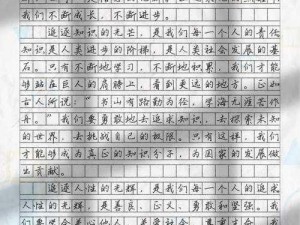 我们不断成长，不断进步。
追逐知识的光芒，是我们每一个人的责任
知识是人类进步的阶梯，是人类社会发展的基
石。只有不断地学习，不断地积累，我们才能
够站在巨人的肩膀上，看到更远的地方。正如
古人所说：“书山有路勤为径，学海无涯苦作
舟。”我们要勇敢地去追求知识，去探索未知
的世界，去挑战自己的极限。只有这样，我们
才能够成为真正的知识分子，为国家的发展做
出贡献。
追逐人性的光辉，是我们每一个人的追求
人性的光辉，是善良、正义、勇敢和坚强。我